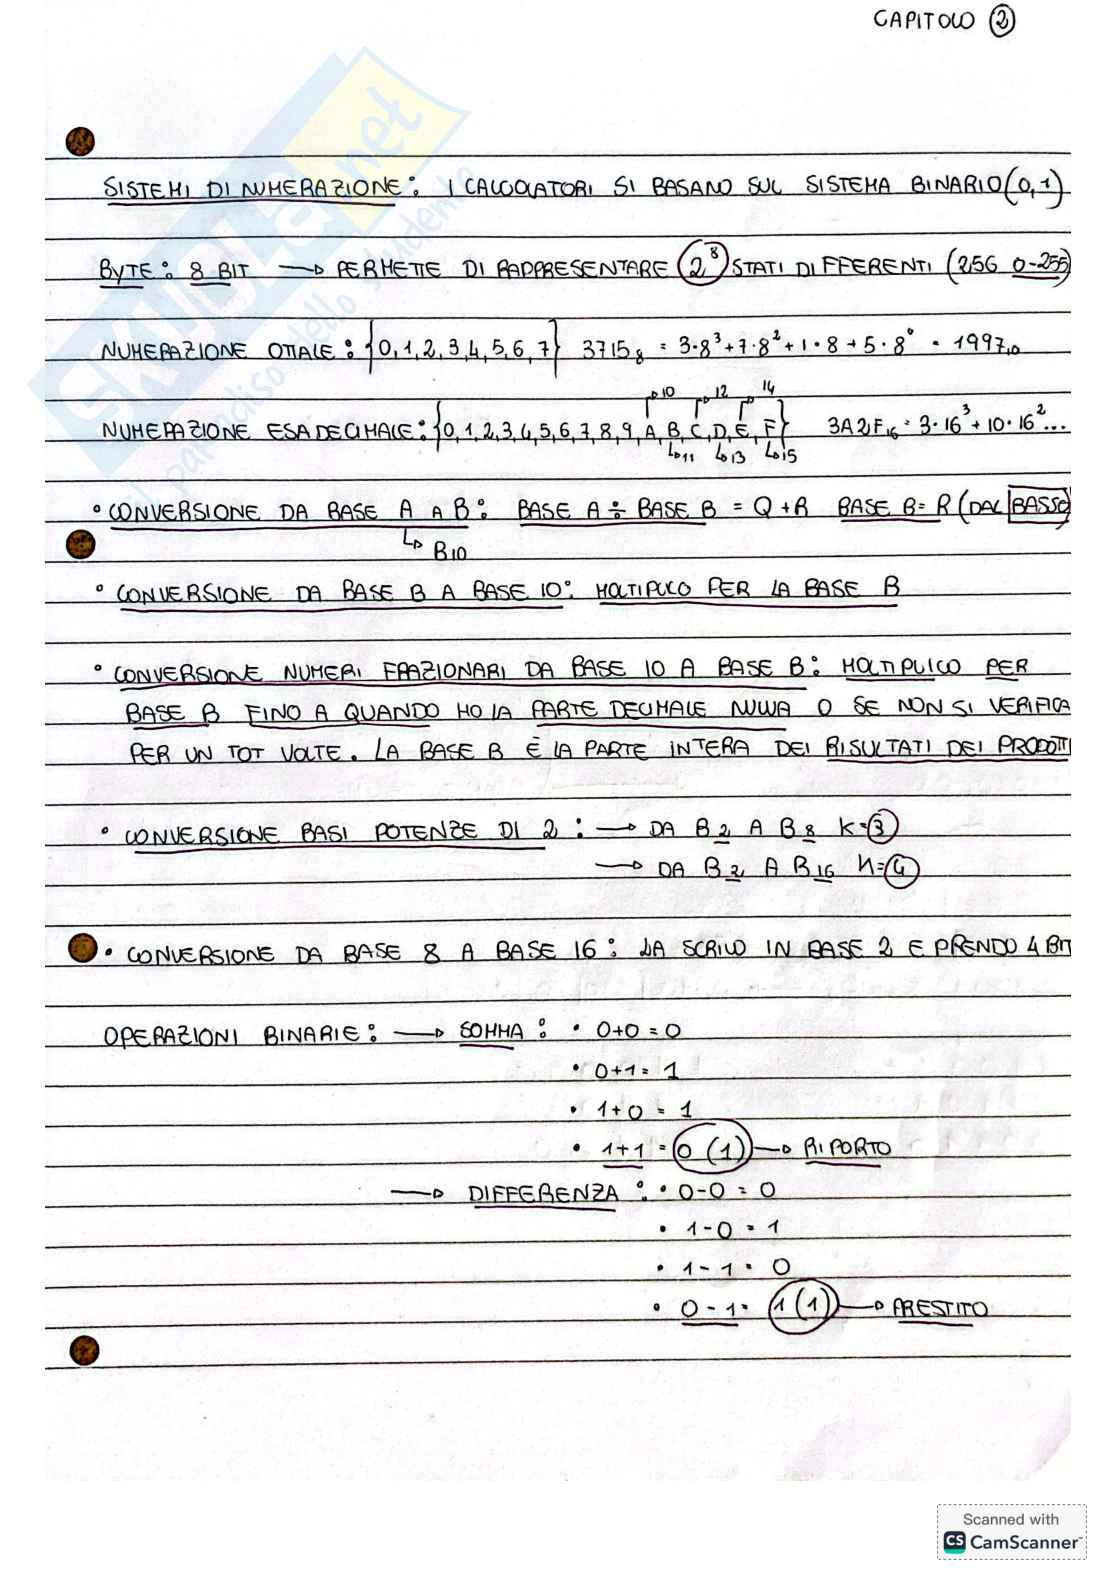 CAPITOLO 2
SISTEMI DI NUMERAZIONE: I CALCOLATORI SI BASANO SUL SISTEMA BINARIO (0,1)
BYTE: 8 BIT → PERMETTE DI RAPPRESENTARE 2⁸ STATI DIFFERENTI (256 0-255)
NUMERAZIONE OTTALE: {0,1,2,3,4,5,6,7} 3715₈ = 3·8³+7·8²+1·8+5·8⁰ = 1997₁₀
10 12 14
NUMERAZIONE ESADECIMALE: {0,1,2,3,4,5,6,7,8,9,A,B,C,D,E,F} 3A2F₁₆ = 3·16³+10·16²...
11 13 15
• CONVERSIONE DA BASE A A B: BASE A ÷ BASE B = Q+R BASE B = R (DAL BASSO)
B10
• CONVERSIONE DA BASE B A BASE 10: MOLTIPLICO PER LA BASE B
• CONVERSIONE NUMERI FRAZIONARI DA BASE 10 A BASE B: MOLTIPLICO PER
BASE B FINO A QUANDO HO LA PARTE DECIMALE NULLA O SE NON SI VERIFICA
PER UN TOT VOLTE. LA BASE B È LA PARTE INTERA DEI RISULTATI DEI PRODOTTI
• CONVERSIONE BASI POTENZE DI 2: → DA B₂ A B₈ K=3
→ DA B₂ A B₁₆ K=4
• CONVERSIONE DA BASE 8 A BASE 16: LA SCRIVO IN BASE 2 E PRENDO 4 BIT
OPERAZIONI BINARIE: → SOMMA: • 0+0=0
• 0+1=1
• 1+0=1
• 1+1=0(1) → RIPORTO
→ DIFFERENZA: • 0-0=0
• 1-0=1
• 1-1=0
• 0-1=1(1) → PRESTITO
SKUOLA.net
il paradiso dello studente
Scanned with
CS CamScanner